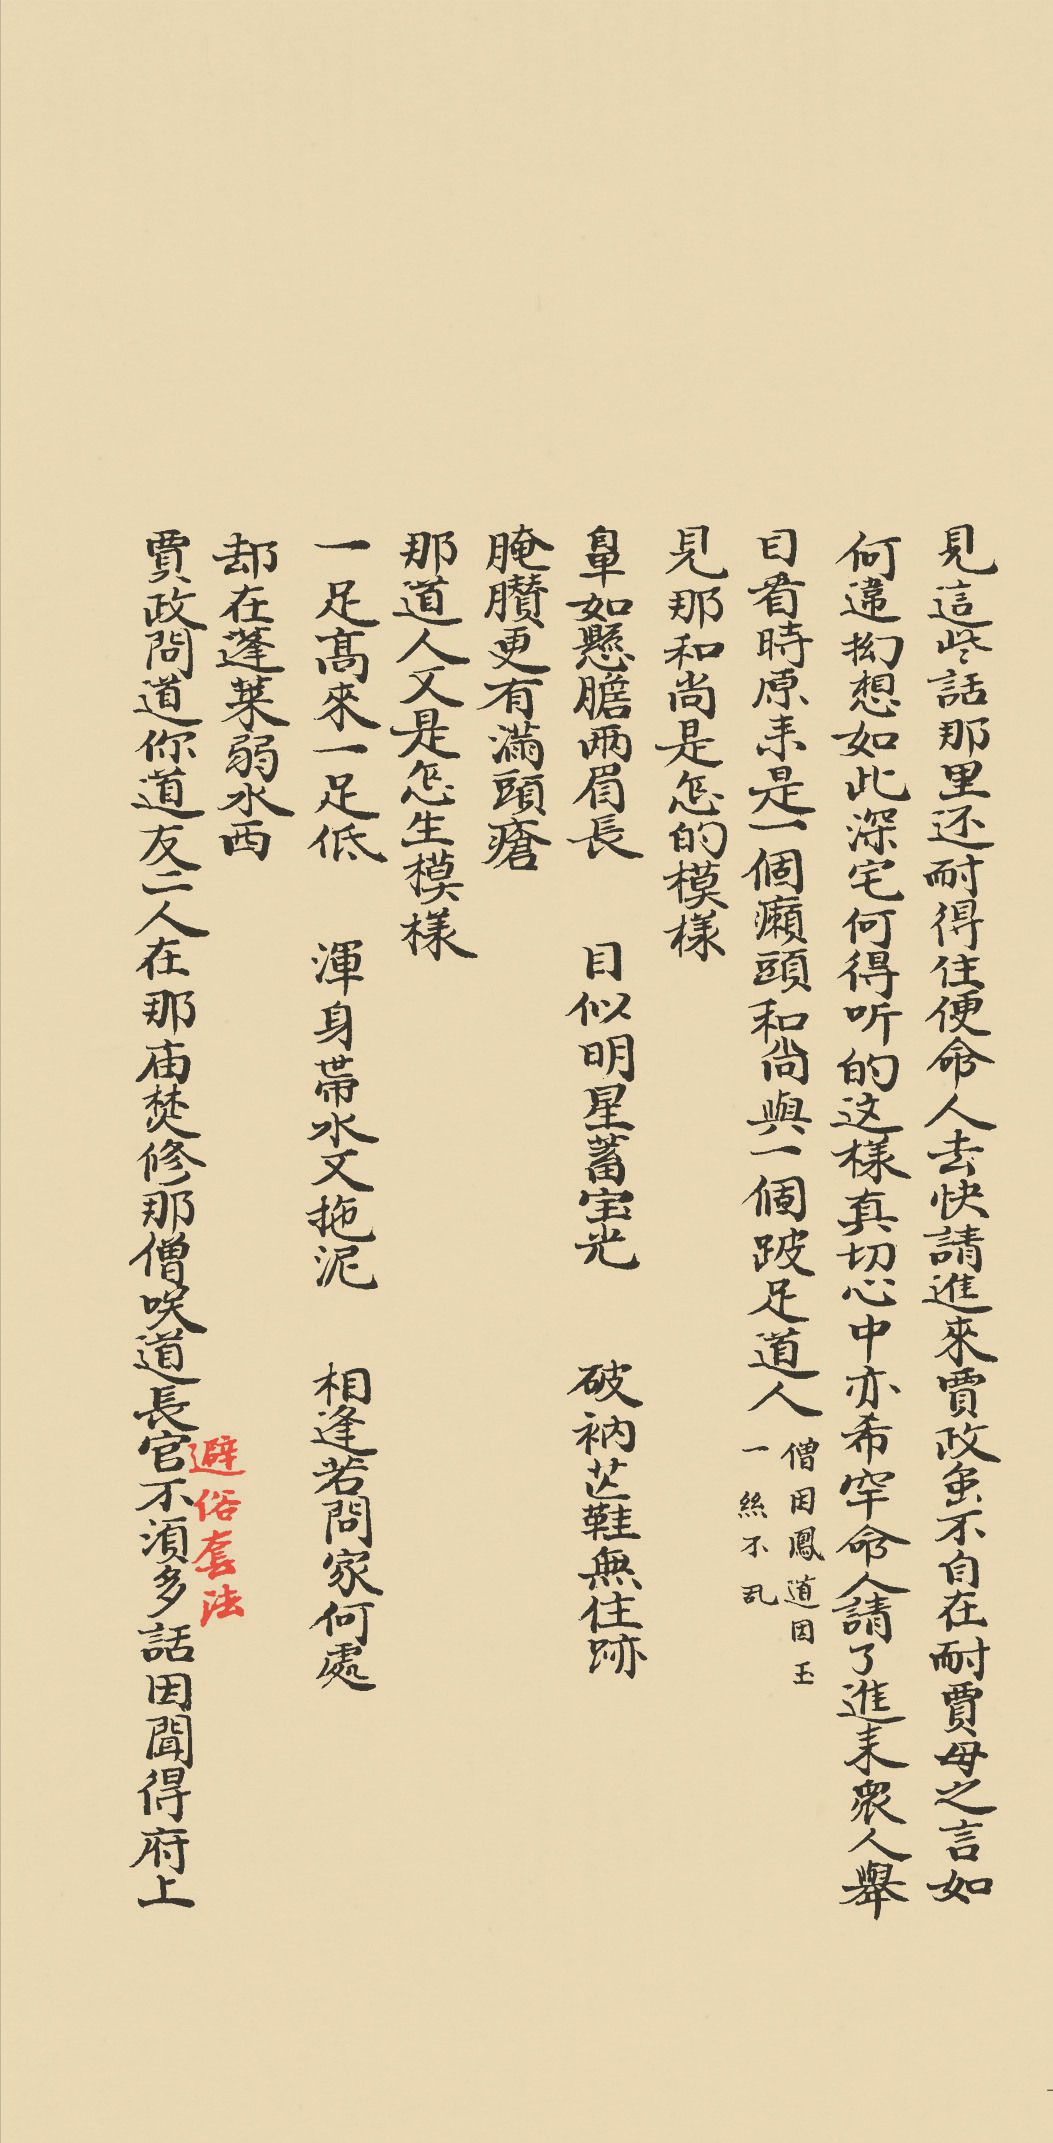 見這些話那里还耐得住便命人去快請進來賈政虽不自在耐賈母之言如
何違拗想如此深宅何得听的这樣真切心中亦希罕命人請了進来衆人舉
目看時原来是一個癩頭和尚與一個跛足道人
僧因鳳道因玉
一絲不乱
見那和尚是怎的模樣
鼻如懸膽兩眉長　目似明星蓄宝光　破衲芒鞋無住跡
腌臢更有滿頭瘡
那道人又是怎生模樣
一足高來一足低　渾身帶水又拖泥　相逢若問家何處
却在蓬萊弱水西
賈政問道你道友二人在那庙焚修那僧咲道長官不湏多話因聞得府上
避俗套法